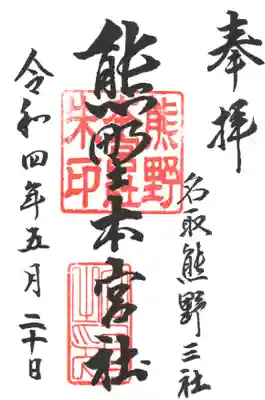 奉拝
名取熊野三社
熊野本宮社
令和四年五月二十日